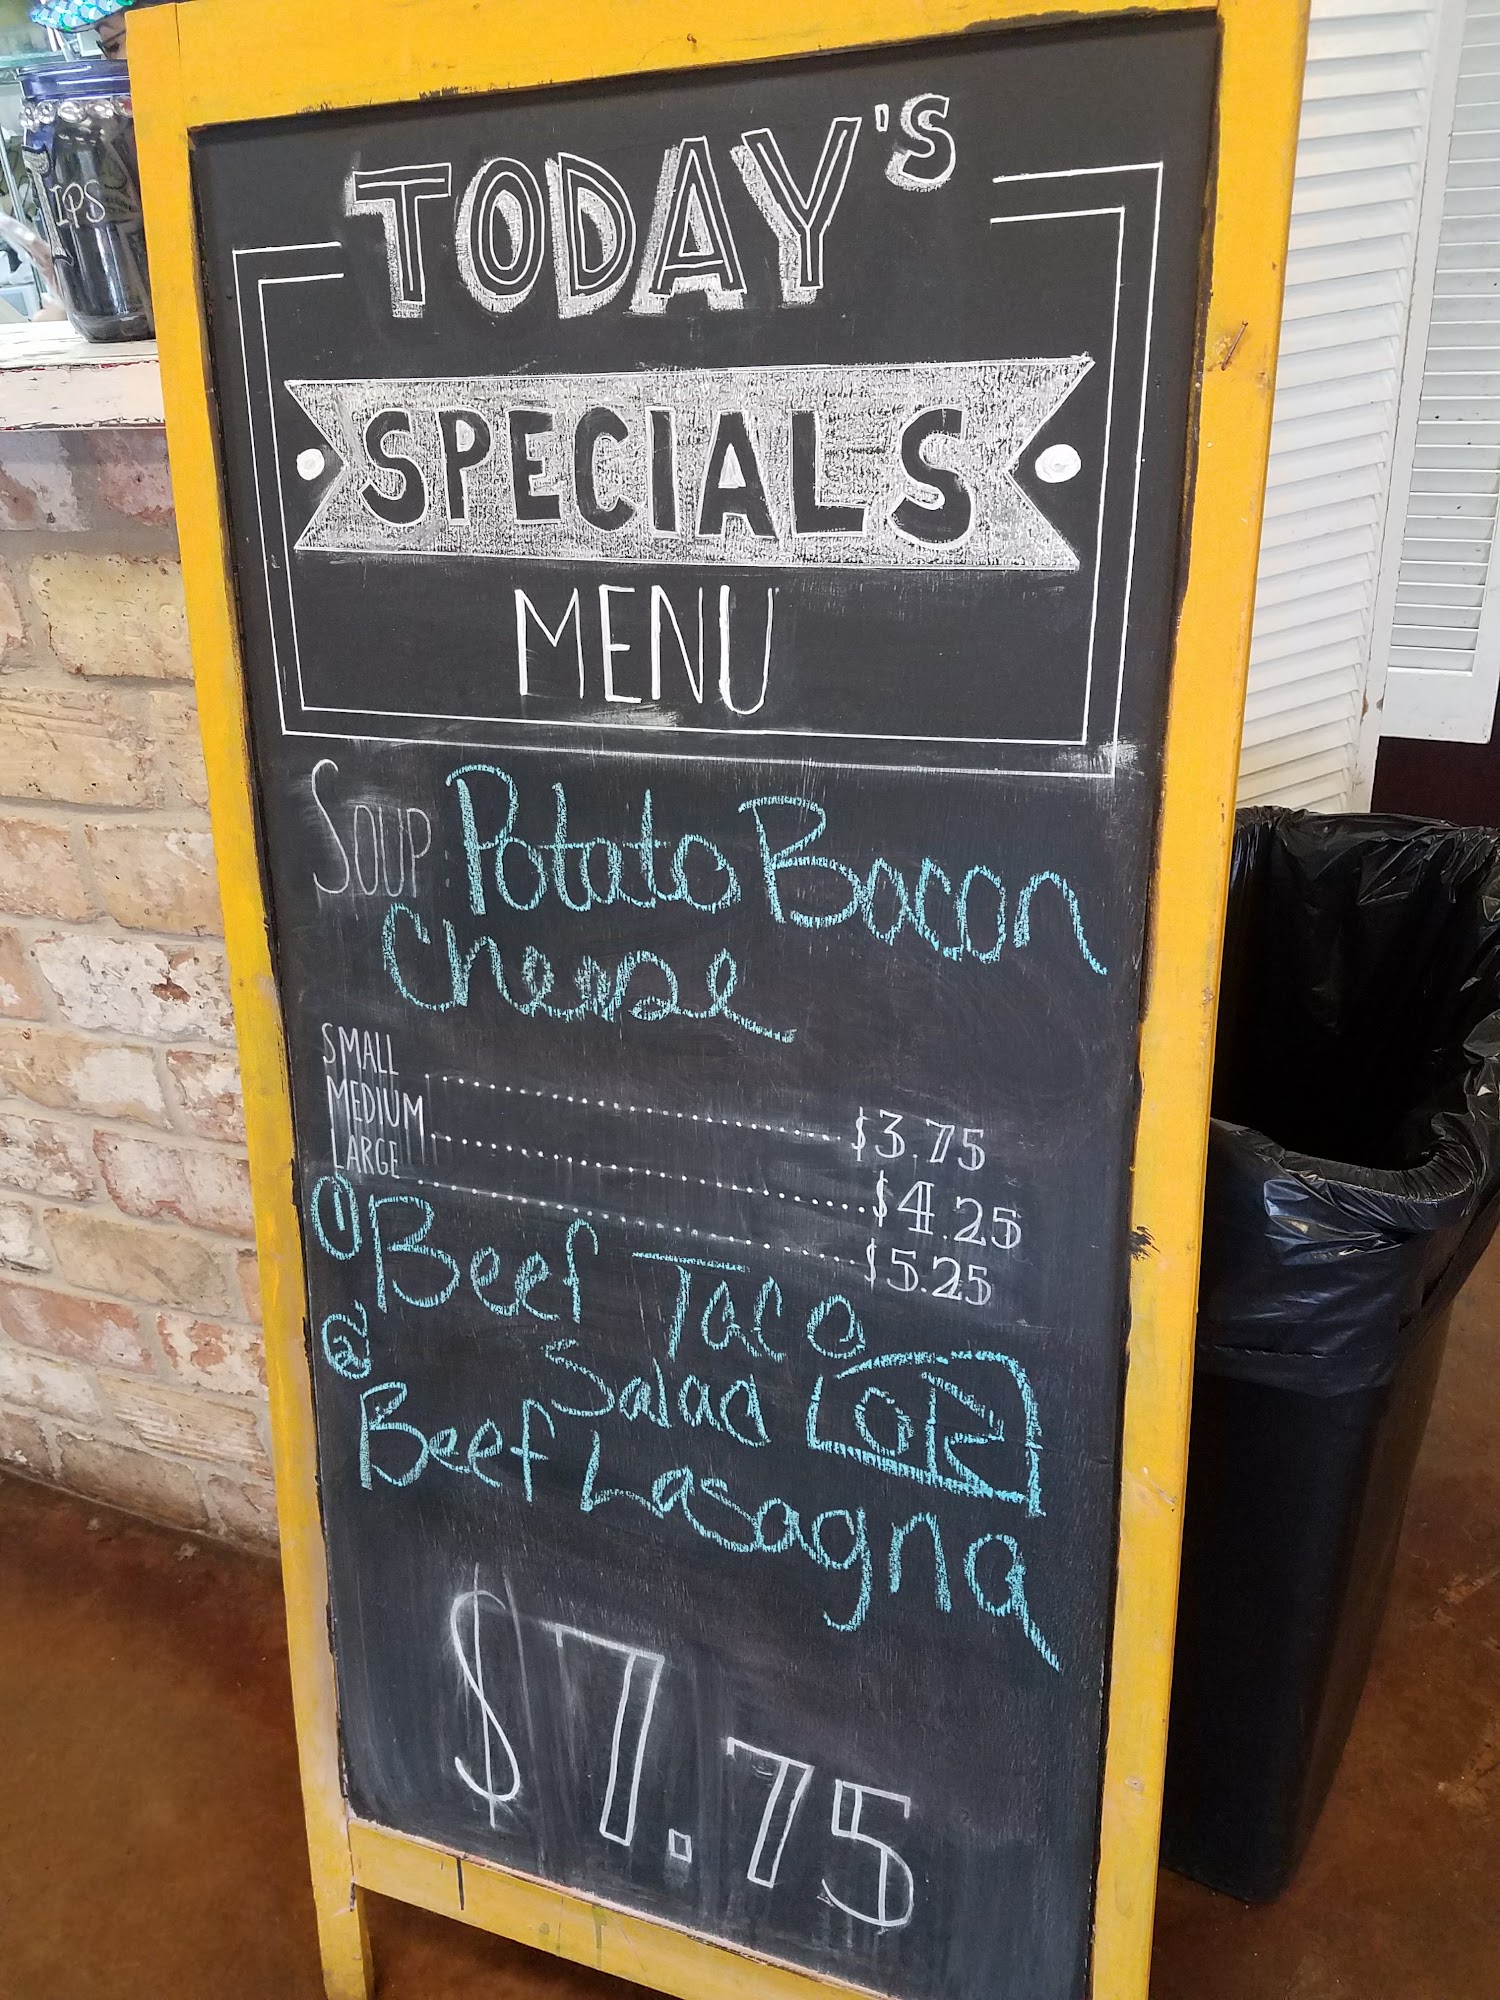 IPS
TODAY'S
SPECIALS
MENU
SOUP: Potato Bacon
Cheese
SMALL ........ $3.75
MEDIUM ........ $4.25
LARGE ........ $5.25
① Beef Taco
Salad OR
② Beef Lasagna
$7.75